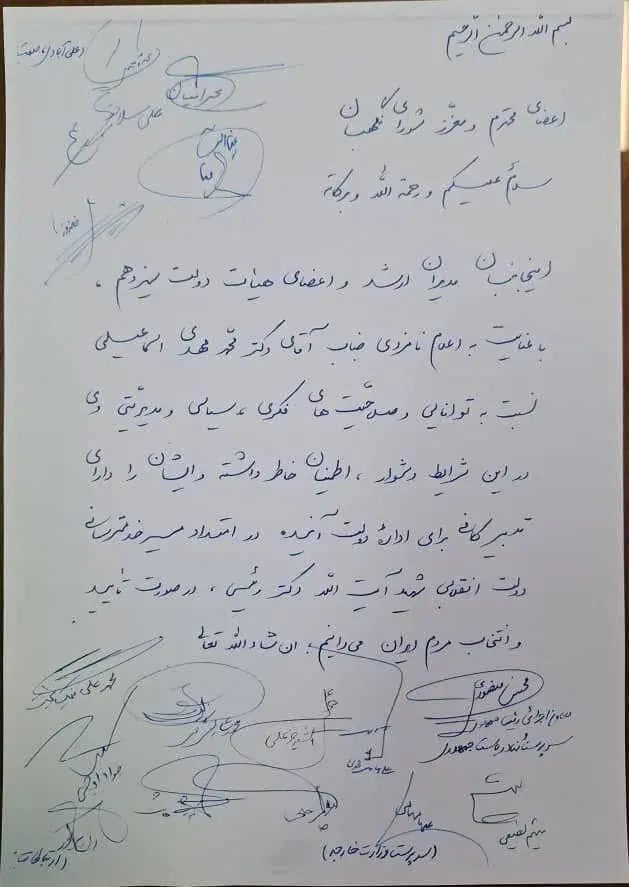 بسم الله الرحمن الرحیم
(علی آبادی/صمت)
علی سلا
بهرامی
اعضای محترم و معزز شورای نگهبان
سلام علیکم و رحمة الله و برکاته
اینجانبان مدیران ارشد و اعضای هیأت دولت سیزدهم،
با عنایت به اعلام نامزدی جناب آقای دکتر محمد مهدی اسماعیلی
نسبت به توانایی و صلاحیت های فکری، سیاسی و مدیریتی وی
در این شرایط دشوار، اطمینان خاطر داشته و ایشان را دارای
تدبیر کافی برای ادارۀ دولت آینده در امتداد مسیر خدمترسانی
دولت انقلابی شهید آیت الله دکتر رئیسی، در صورت تأیید
و انتخاب مردم ایران می‌دانیم؛ ان شاءالله تعالی
محسن منصوری
معاون اجرائی رئیس جمهور
سرپرست نهاد ریاست جمهوری
محمد علی
جواد اوجی
میثم لطیفی
(سرپرست وزارت خارجه)
(ارتباطات)